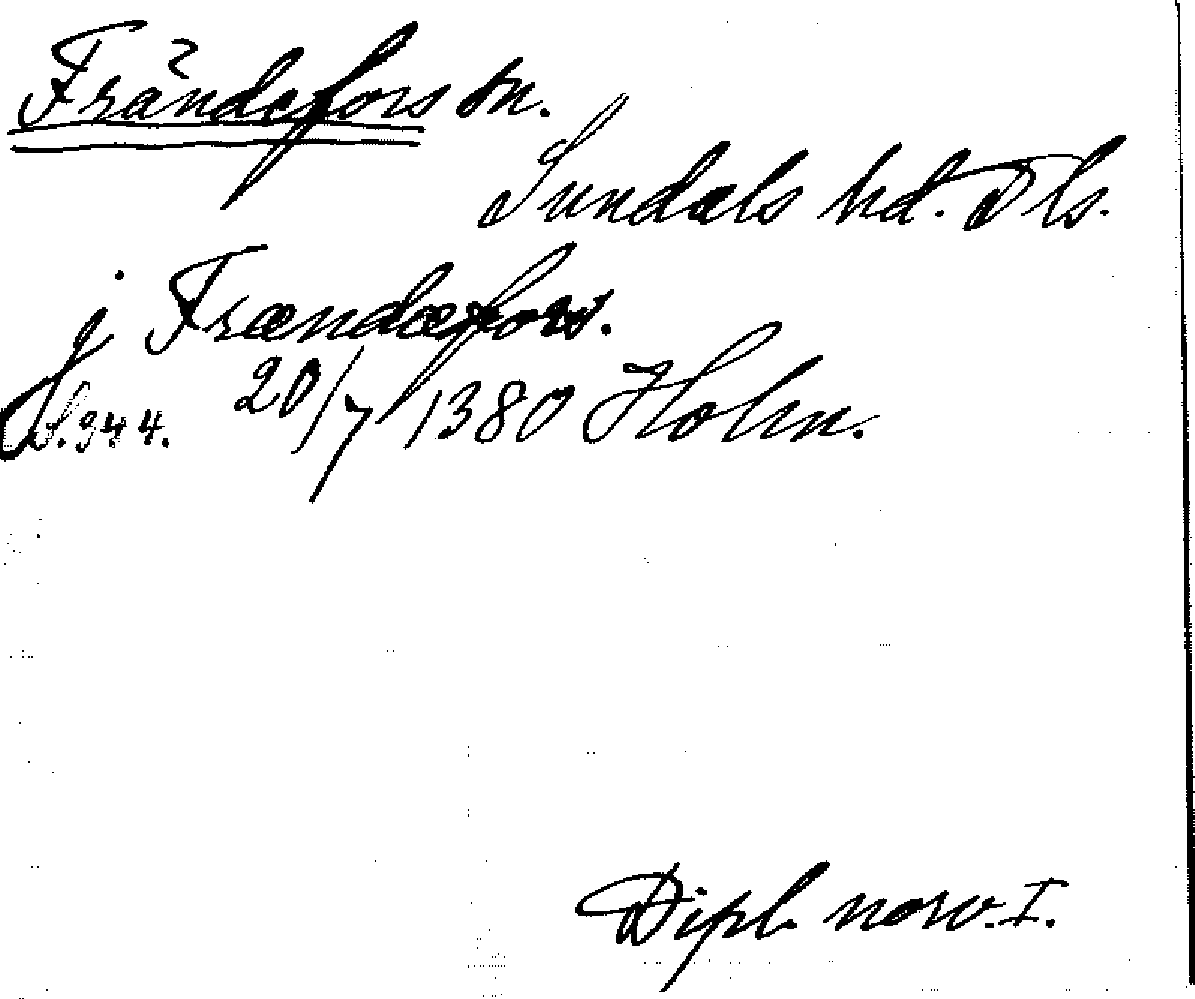 Frändefors sn.
Sundals hd. Dls.
j Frændæfors.
S. 944. 20/7 1380 Holm.
Dipl. norv. I.